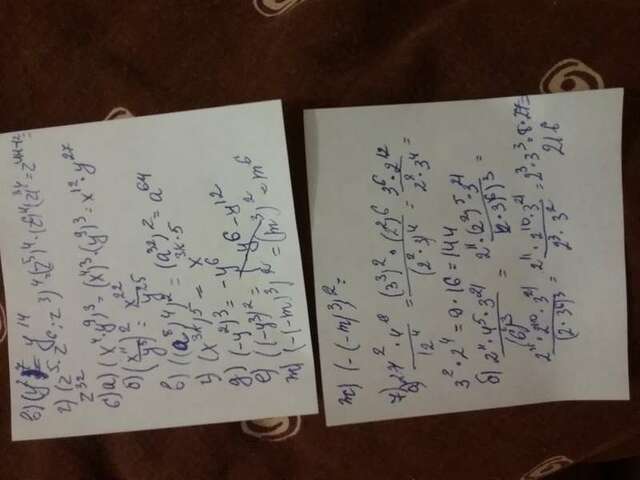 в) (y²)⁷ = y¹⁴
г) (z⁵ · z⁶ : z³)⁴ = (z⁵)⁴ · (z⁶)⁴
z³²
6) а) (x⁴ · y⁹)³ = (x⁴)³ · (y⁹)³ = x¹² · y²⁷
б) (x¹¹/y⁵)² = x²²/y²⁵
в) ((a⁸)⁴)² = (a³²)² = a⁶⁴
г) (x³ˣ)⁵ = x³ˣ·⁵
д) (-y²)³ = -y⁶
е) ((-y³)² = y⁶ - y¹²
ж) (-(-m)³)² = (m³)² = m⁶
ж) (-(-m)³)² =
7) 27² · 4⁶/12⁴ = (3³)² · (2²)⁶/(2² · 3)⁴ = 3⁶ · 2¹²/2⁸ · 3⁴ =
3² · 2⁴ = 9 · 16 = 144
б) 2¹¹ · 4⁵ · 3²¹/(6⁶)³ = 2¹¹ · (2²)⁵ · 3²¹/(2 · 3⁶)³ =
2¹¹ · 2¹⁰ · 3²¹/(2 · 3⁶)³ = 2¹¹ · 2¹⁰ · 3²¹/2³ · 3² = 2³ · 3³ = 8 · 27 =
216